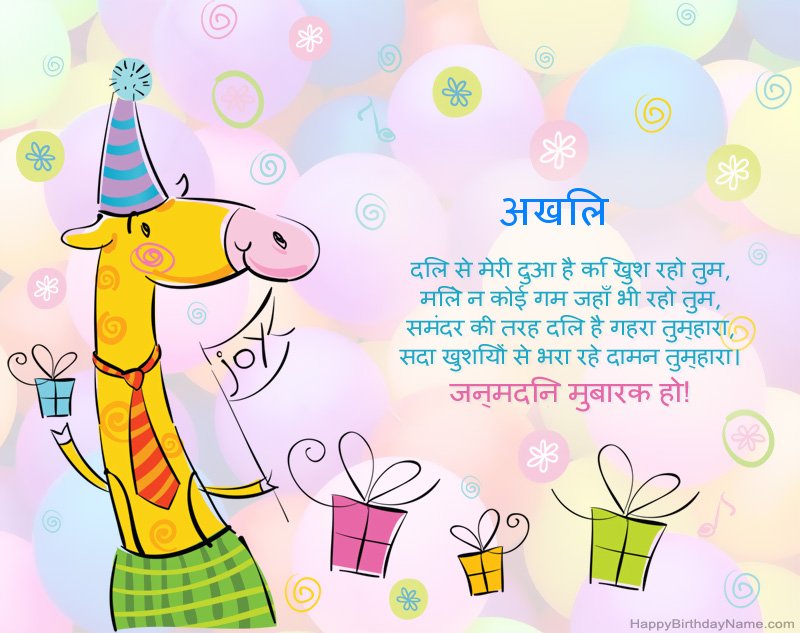 अखलि
दलि से मेरी दुआ है कि खुश रहो तुम,
मलिे न कोई गम जहाँ भी रहो तुम,
समंदर की तरह दलि है गहरा तुम्हारा,
सदा खुशयिों से भरा रहे दामन तुम्हारा।
जन्मदनि मुबारक हो!
joy
HappyBirthdayName.com